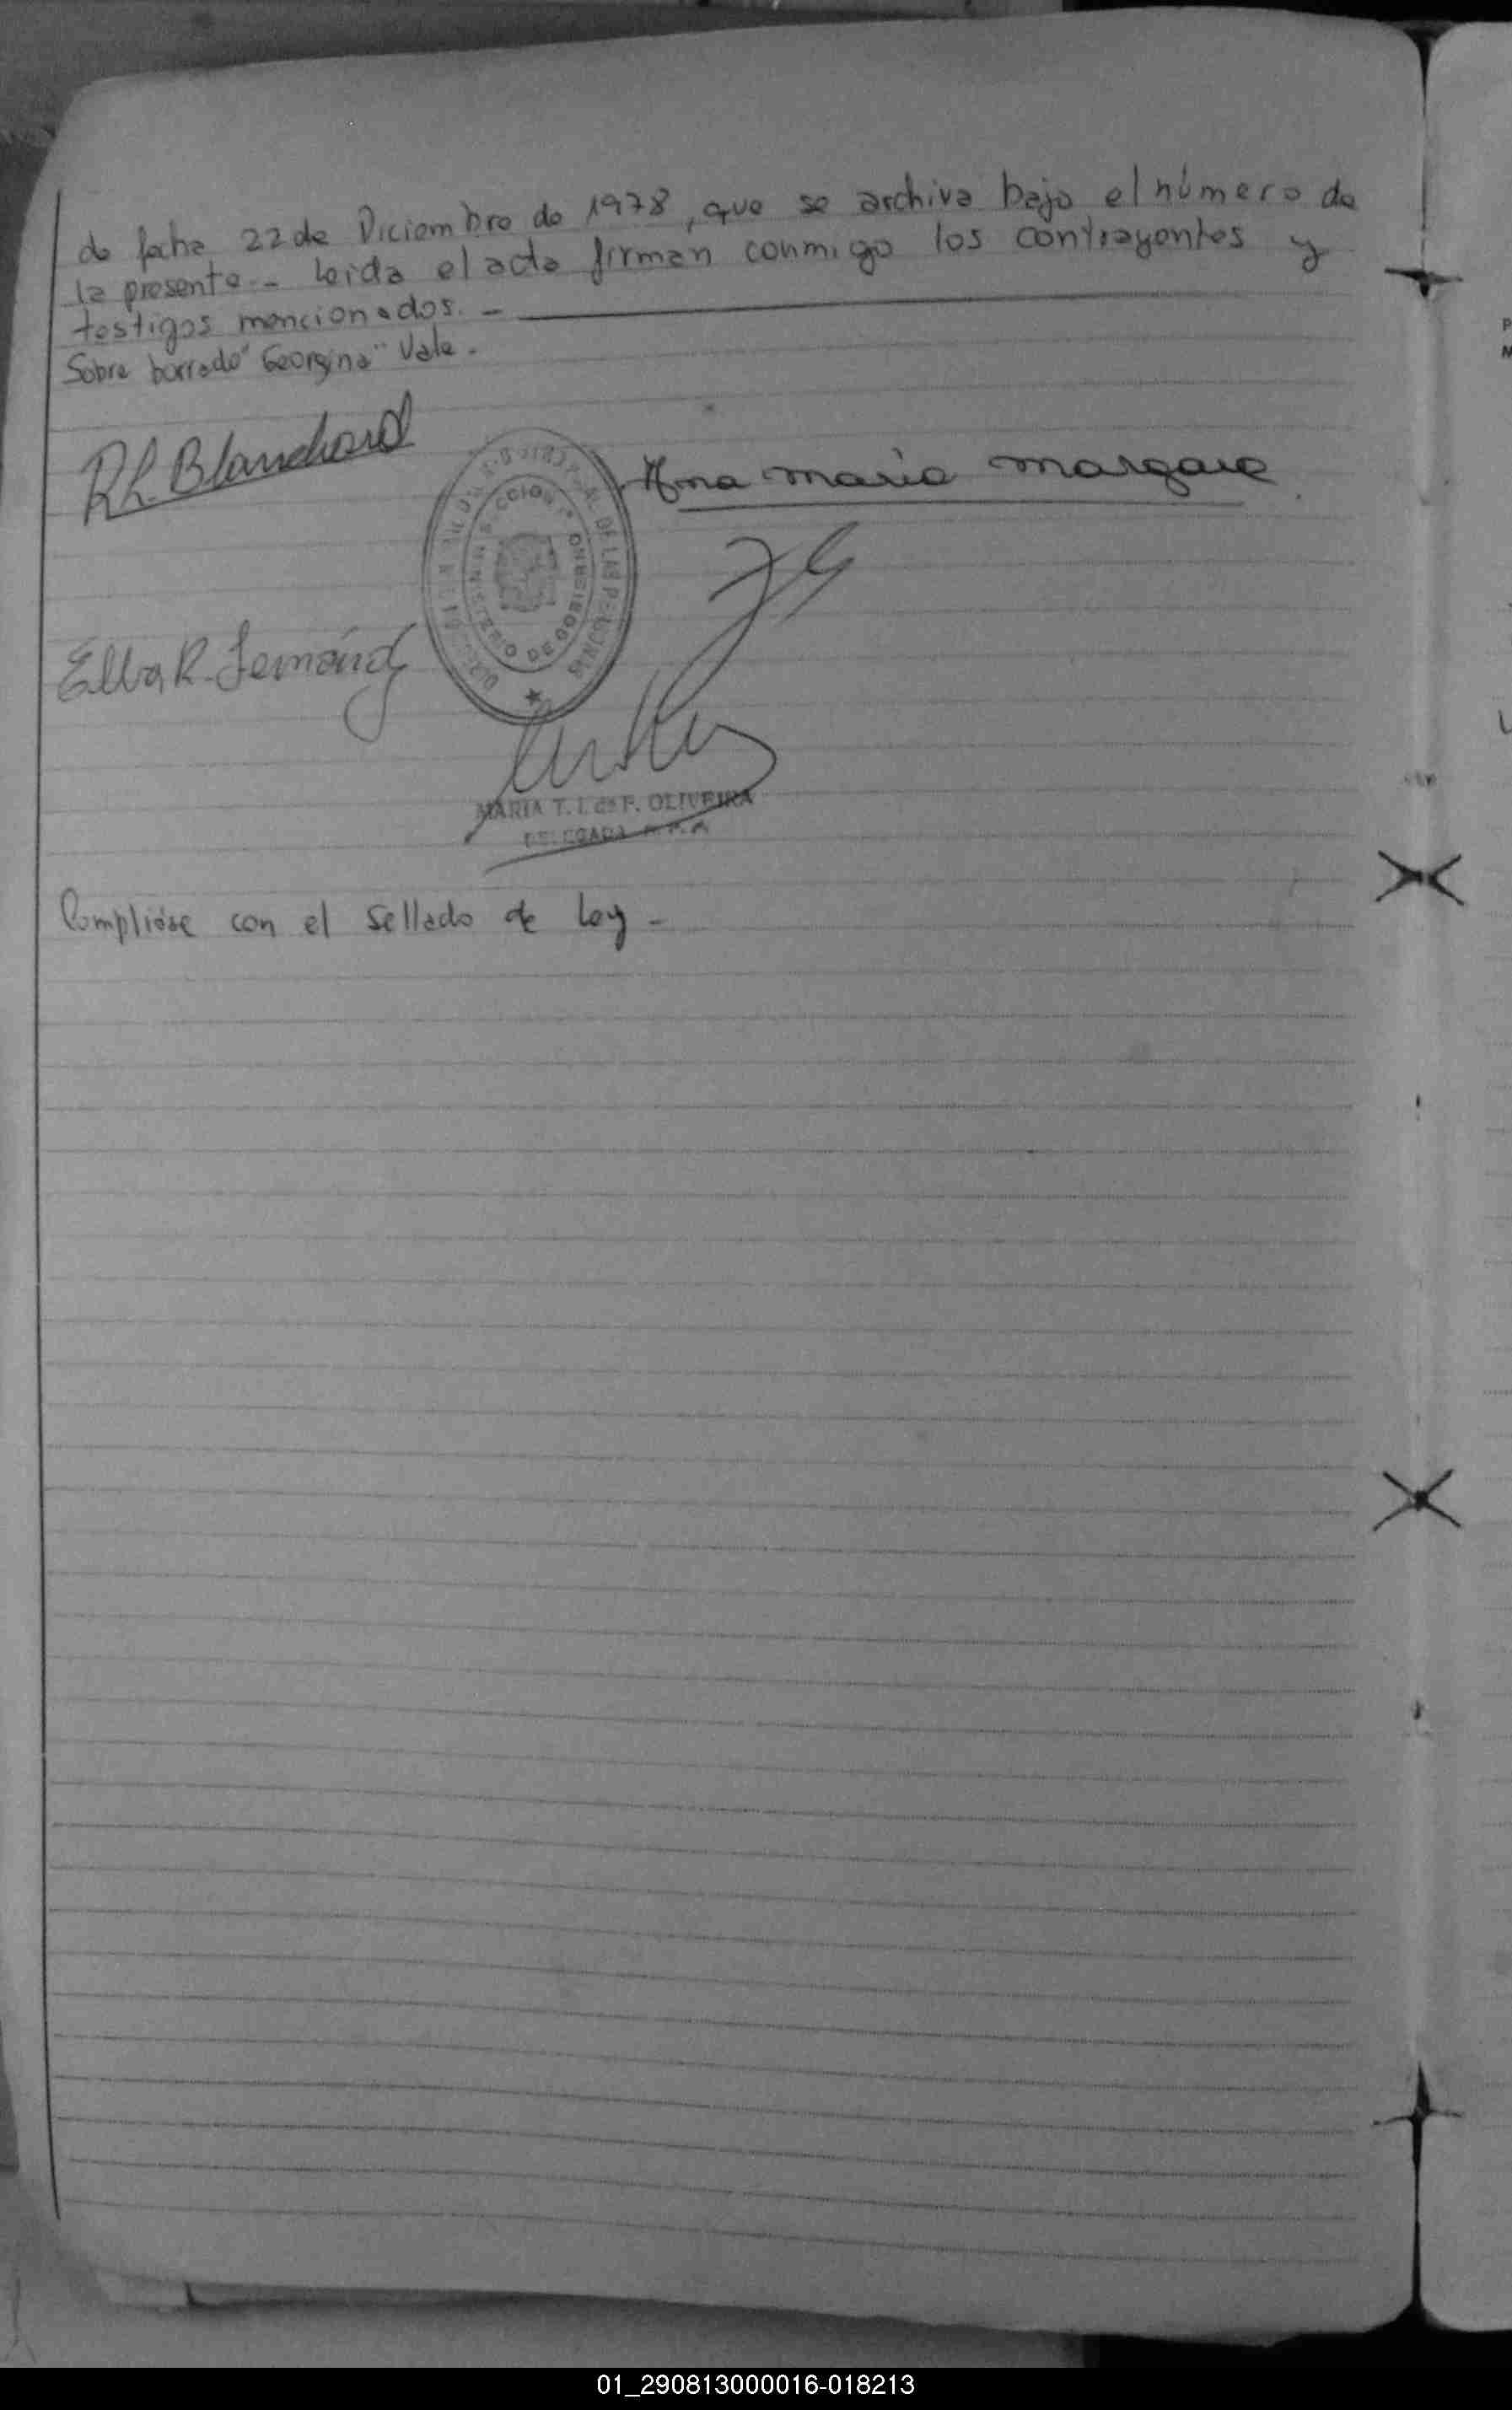 de fecha 22 de Diciembre de 1978, que se archiva bajo el número de
la presente.- Leida el acta firman conmigo los contrayentes y
testigos mencionados. -
Sobre borrado "Georgina" Vale.
R.L. Blanchard
Ana maria
DE LAS PERSONAS
MINISTERIO DE GOBIERNO
Elba R. Fernández
MARIA T. I. de F. OLIVEIRA
DELEGADA
Complióse con el sellado de Ley -
01_290813000016-018213